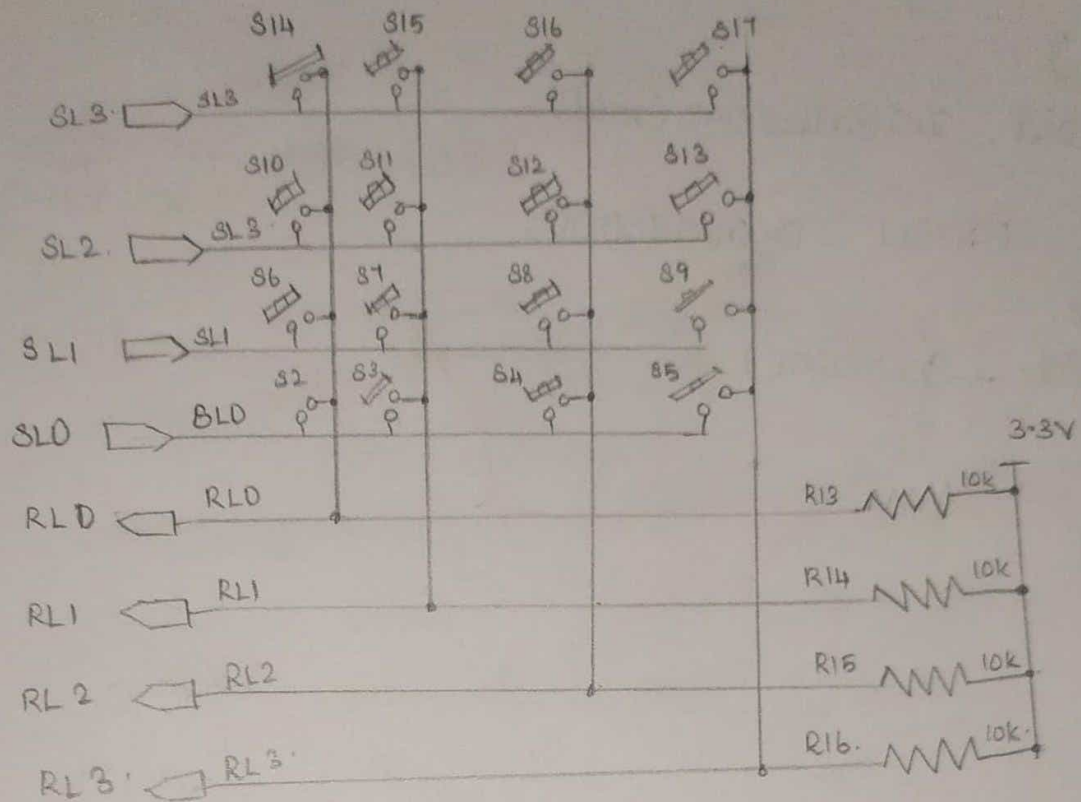 S14 S15 S16 S17
SL3. SL3
S10 S11 S12 S13
SL2. SL3.
S6 S7 S8 S9
SL1 SL1
S2 S3 S4 S5
SL0 SL0
3.3V
RL0 RL0 R13 10k
RL1 RL1 R14 10k
RL2 RL2 R15 10k
RL3. RL3. R16. 10k.